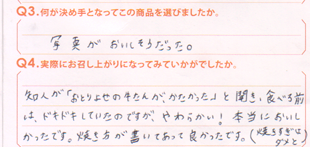 Q3.何が決め手となってこの商品を選びましたか。
写真がおいしそうだった。
Q4.実際にお召し上がりになってみていかがでしたか。
知人が「おとりよせの牛たんが、かたかった」と聞き、食べる前
は、ドキドキしていたのですが、やわらかい！本当においし
かったです。焼き方が書いてあって良かったです。(焼きすぎは
ダメと)